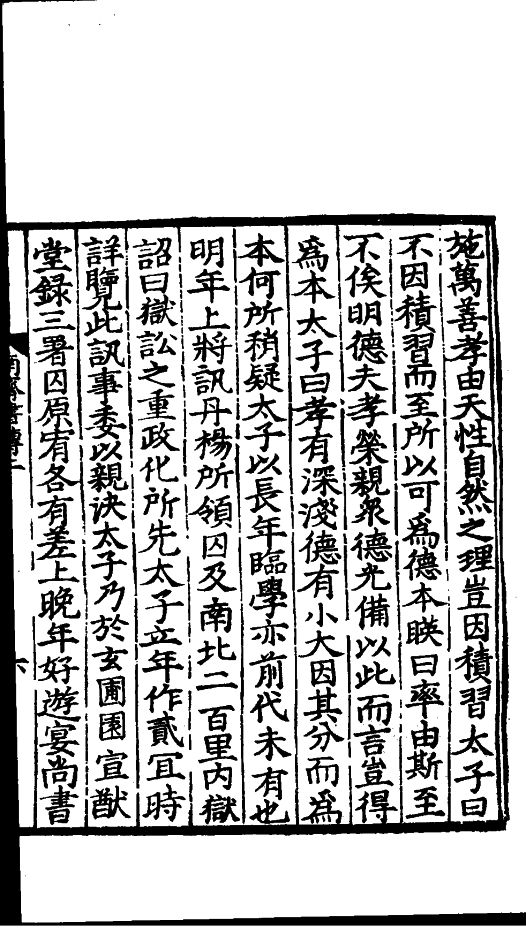 施萬善孝由天性自然之理豈因積習太子曰
不因積習而至所以可為德本暎曰率由斯至
不俟明德夫孝榮親衆德光備以此而言豈得
為本太子曰孝有深淺德有小大因其分而為
本何所稍疑太子以長年臨學亦前代未有也
明年上將訊丹楊所領囚及南北二百里內獄
詔曰獄訟之重政化所先太子立年作貳宜時
詳覽此訊事委以親決太子乃於玄圃園宣猷
堂錄三署囚原宥各有差上晚年好遊宴尚書
南齊書傳二
六